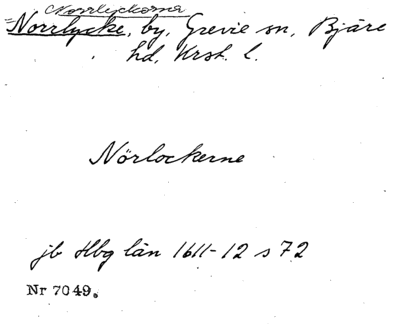 Norrlyckorna
=Norrlycke, by, Grevie sn, Bjäre
hd, Krst. l.
Nörlockerne
jb Hbg län 1611-12 s 72
Nr 7049.